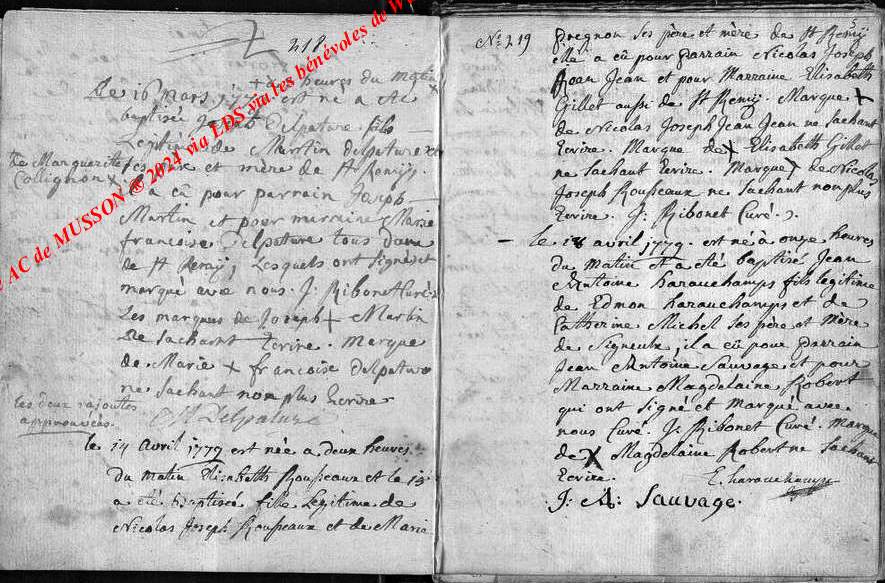 218.
+ heures du matin
Le 16 mars 1779 est né a été
baptisé Joseph Delpature fils
Legitime de Martin delpature et
de Marguerite Collignon
ses père et mère de St Remij.
il a eû pour parrain Joseph
Martin et pour marraine Marie
francoise Delpature tous deux
de St Remij, Lesquels ont signé et
marqué avec nous. J: Ribonet Curé.
Les marques de Joseph + Martin
Ne sachant Ecrire. Marque
de Marie x francoise delpature
ne sachant non plus Ecrire
Les deux rajoutes
approuvées.
Delpature
le 14 avril 1779 est née a deux heures
du matin Elisabeth Rousseaux et le 15
a été Baptisée fille Legitime de
Nicolas Joseph Rousseaux et de Marie
AC de MUSSON @ 2024 via LDS via les bénévoles de
No 219
Gregnon ses père et mère de St Remij
elle a eû pour parrain Nicolas Joseph
Jean Jean et pour Marraine Elisabeth
Gillet aussi de St Remij. Marque +
de Nicolas Joseph Jean Jean ne sachant
Ecrire. Marque de x Elisabeth Gillet
ne sachant Ecrire. Marque x de Nicolas
Joseph Rousseaux ne sachant non plus
Ecrire. J: Ribonet Curé.
le 18 avril 1779. est né à onze heures
du matin et a eté baptisé Jean
Antoine harauchamps fils legitime
de Edmon harauchamps et de
Catherine Michel ses père et Mère
de Signeulx, il a eû pour parrain
Jean Antoine Sauvage et pour
Marraine Magdelaine Robert
qui ont signé et Marqué avec
nous Curé. J: Ribonet Curé. Marque
de x Magdelaine Robert ne sachant
Ecrire.
E. harauchamps
J: A: Sauvage.